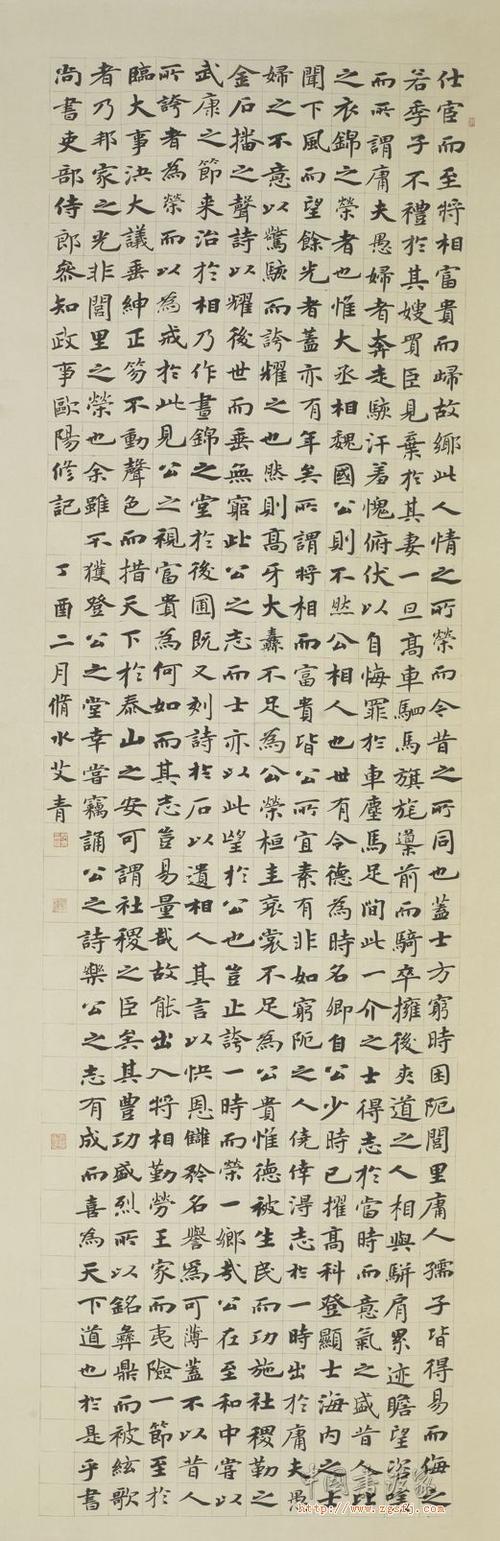 仕宦而至將相富貴而歸故鄉此人情之所榮而今昔之所同也蓋士方窮時困阨閭里庸人孺子皆得易而侮之
若季子不禮於其嫂買臣見棄於其妻一旦高車駟馬旗旄導前而騎卒擁後夾道之人相與駢肩累迹瞻望咨嗟
而所謂庸夫愚婦者奔走駭汗羞愧俯伏以自悔罪於車塵馬足間此一介之士得志於當時而意氣之盛昔人比
之衣錦之榮者也惟大丞相魏國公則不然公相人也世有令德為時名卿自公少時已擢高科登顯士海內之士
聞下風而望餘光者蓋亦有年矣所謂將相而富貴皆公所宜素有非如窮阨之人僥倖得志於一時出於庸夫愚
婦之不意以驚駭而誇耀之也然則高牙大纛不足為公榮桓圭袞裳不足為公貴惟德被生民而功施社稷勒之
金石播之聲詩以耀後世而垂無窮此公之志而士亦以此望於公也豈止誇一時而榮一鄉哉公在至和中嘗以
武康之節来治於相乃作晝錦之堂於後圃既又刻詩於石以遺相人其言以快恩讎矜名譽為可薄蓋不以昔人
所誇者為榮而以為戒於此見公之視富貴為何如而其志豈易量哉故能出入將相勤勞王家而夷險一節至於
臨大事決大議垂紳正笏不動聲色而措天下於泰山之安可謂社稷之臣矣其豐功盛烈所以銘彝鼎而被絃歌
者乃邦家之光非閭里之榮也余雖不獲登公之堂幸嘗竊誦公之詩樂公之志有成而喜為天下道也於是乎書
尚書吏部侍郎參知政事歐陽修記 丁酉二月脩水艾青